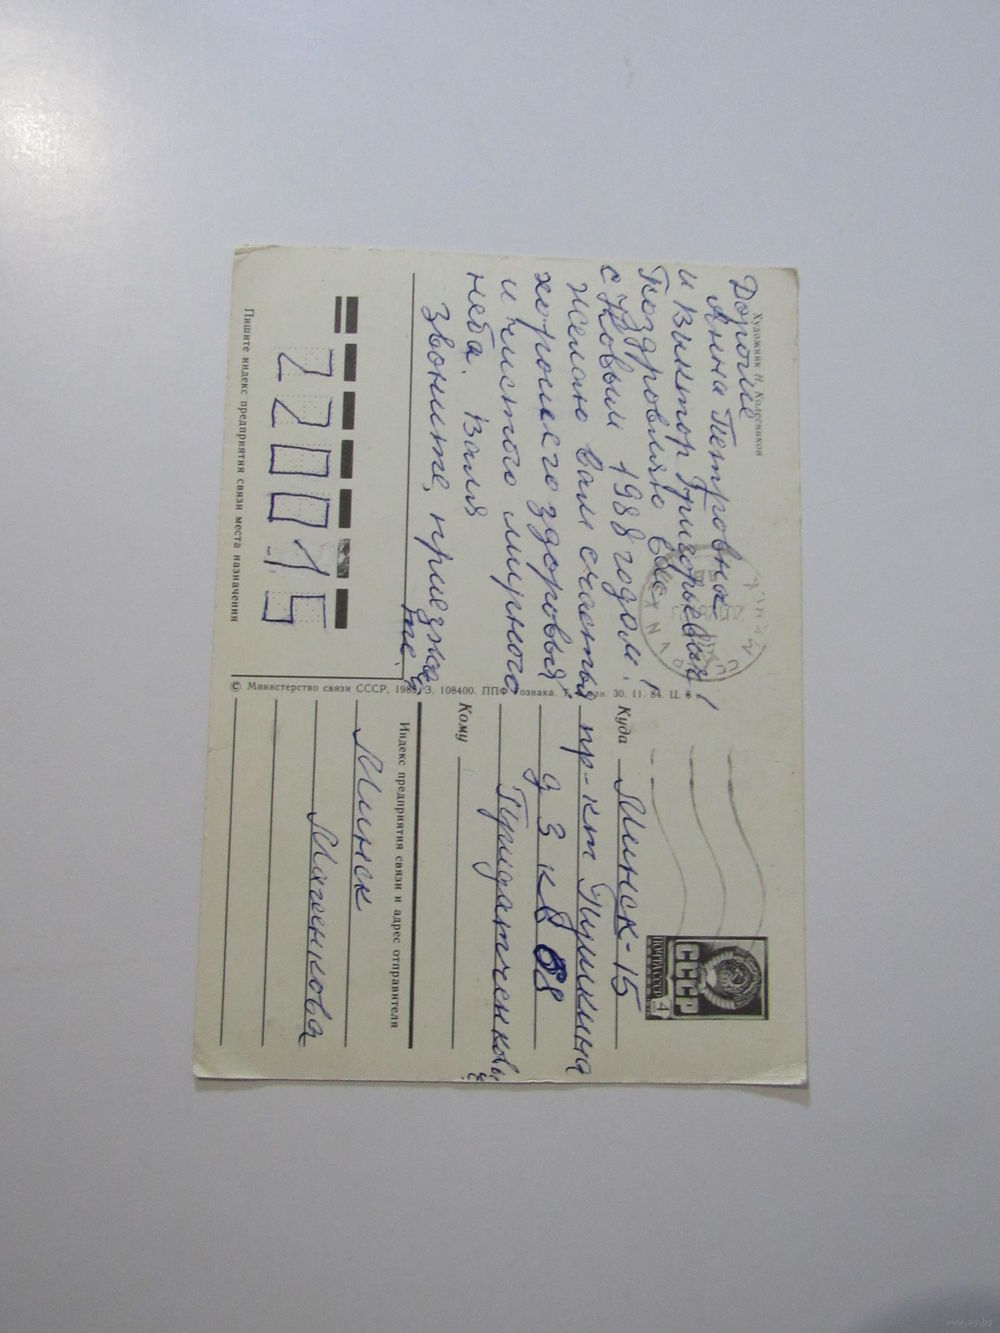 Художник Н. Колесников
Дорогие
Анна Петровна
и Виктор Григорьевич!
Поздравляю Вас
с Новым 1988 годом!
Желаю Вам счастья
хорошего здоровья
и чистого мирного
неба. Валя
Звоните, приезжа
те
220015
Пишите индекс предприятия связи места назначения
© Министерство связи СССР, 1985. З. 108400. ППФ Гознака. 30. 11. 84. Ц. 5 к.
ПОЧТА СССР
4
СССР
МИНСК
Куда Минск-15
пр-кт Пушкина
д 3 кв 68
Придатченковы
Кому
Индекс предприятия связи и адрес отправителя
Минск
Маженкова
www.ay.by